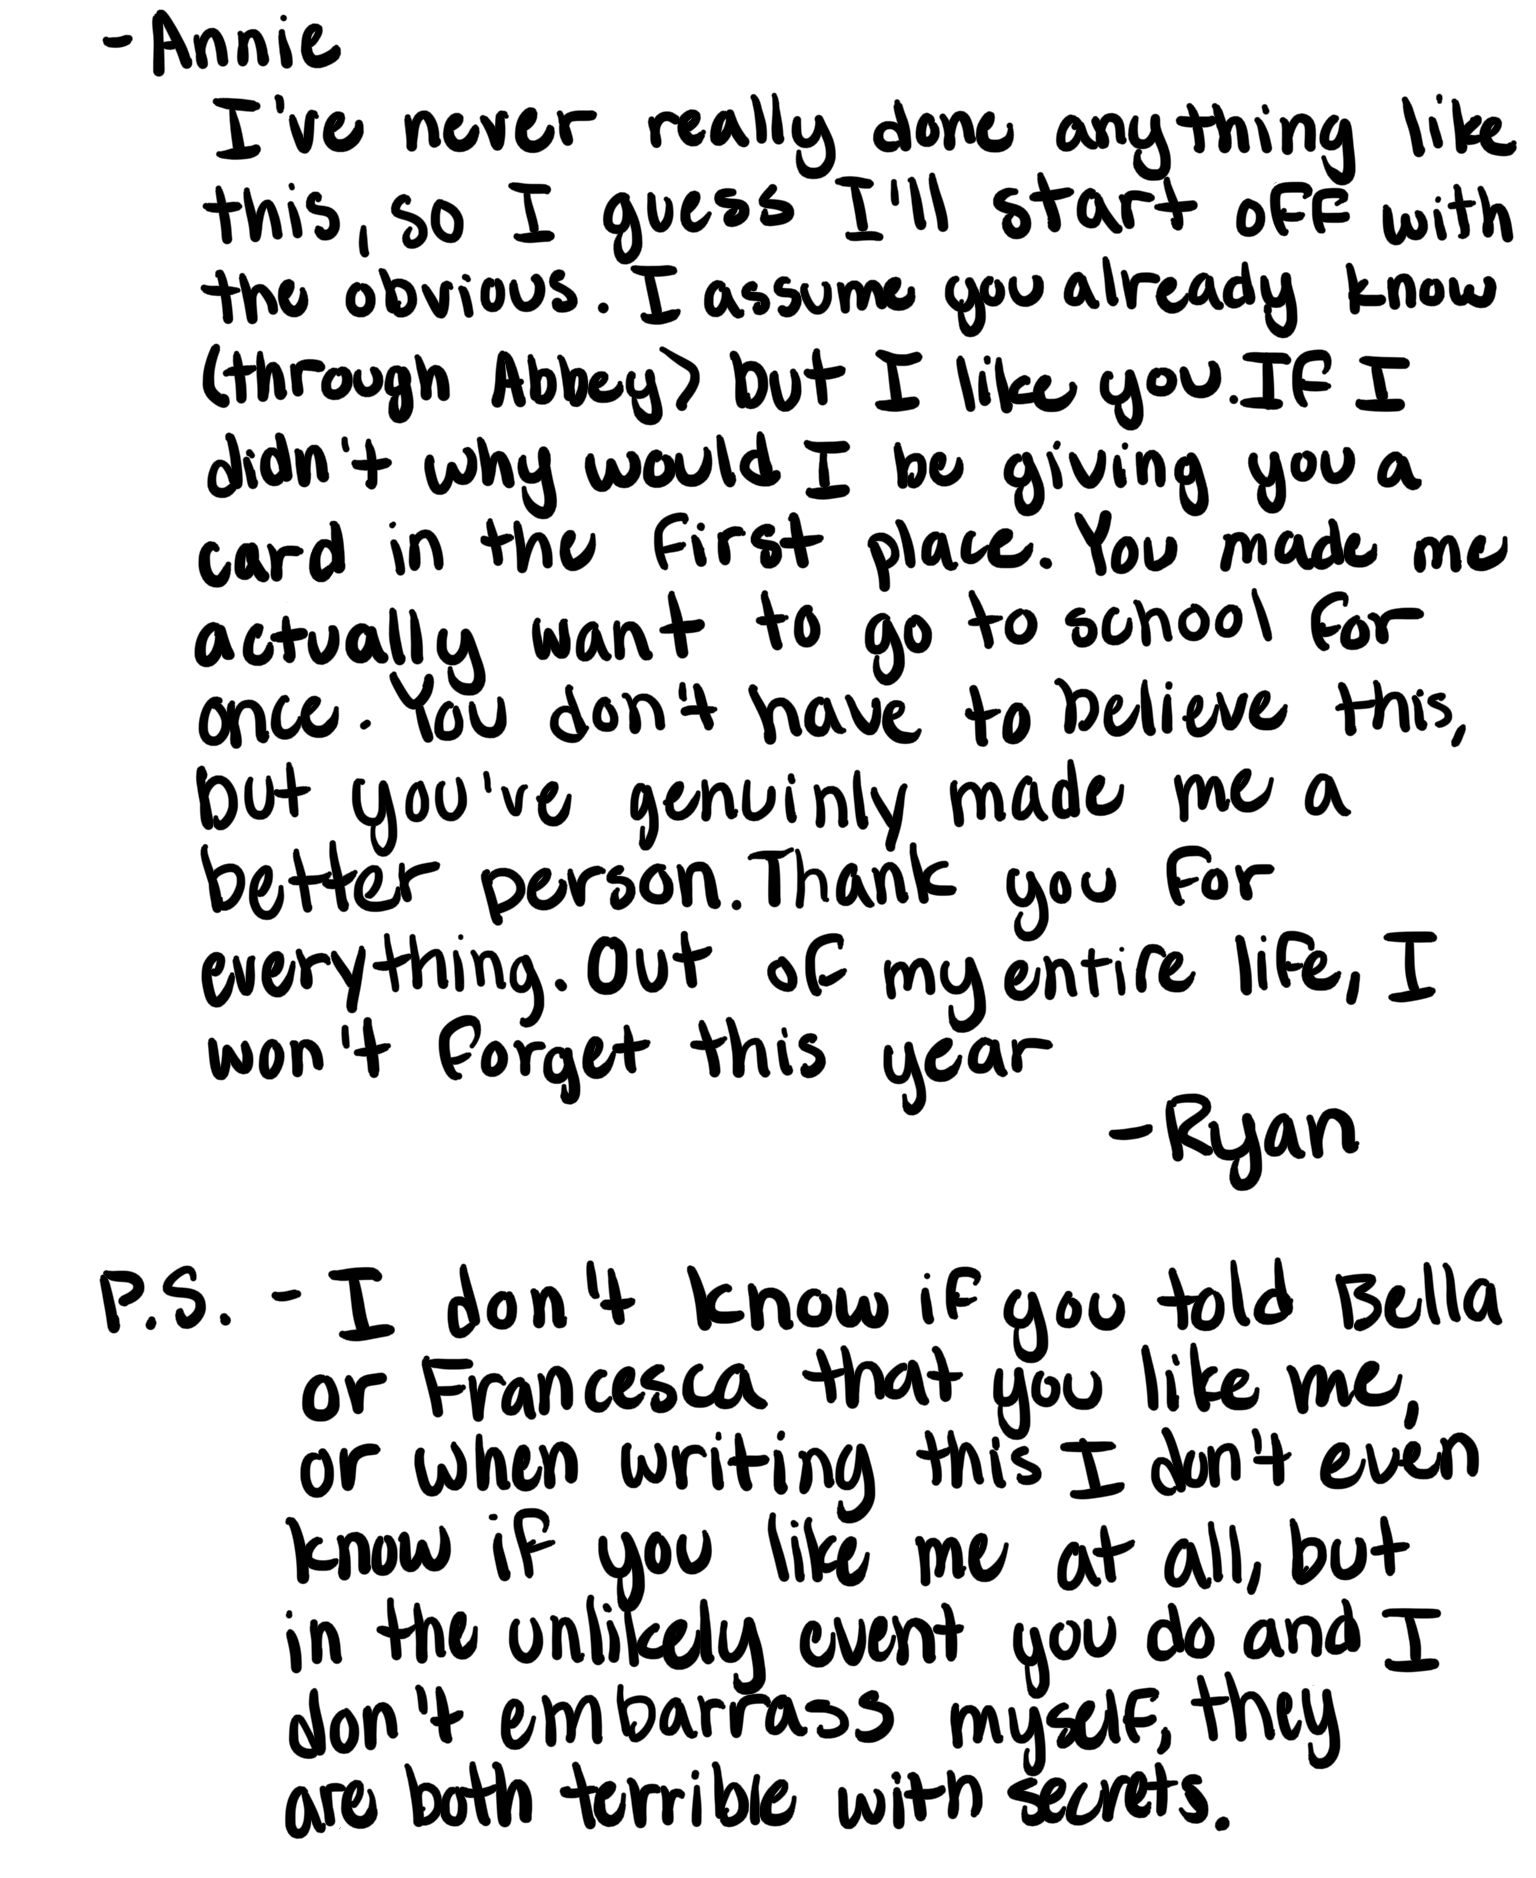 -Annie
I've never really done anything like
this, so I guess I'll start off with
the obvious. I assume you already know
(through Abbey) but I like you. If I
didn't why would I be giving you a
card in the first place. You made me
actually want to go to school for
once. You don't have to believe this,
but you've genuinly made me a
better person. Thank you for
everything. Out of my entire life, I
won't forget this year
-Ryan
P.S. - I don't know if you told Bella
or Francesca that you like me,
or when writing this I don't even
know if you like me at all, but
in the unlikely event you do and I
don't embarrass myself, they
are both terrible with secrets.